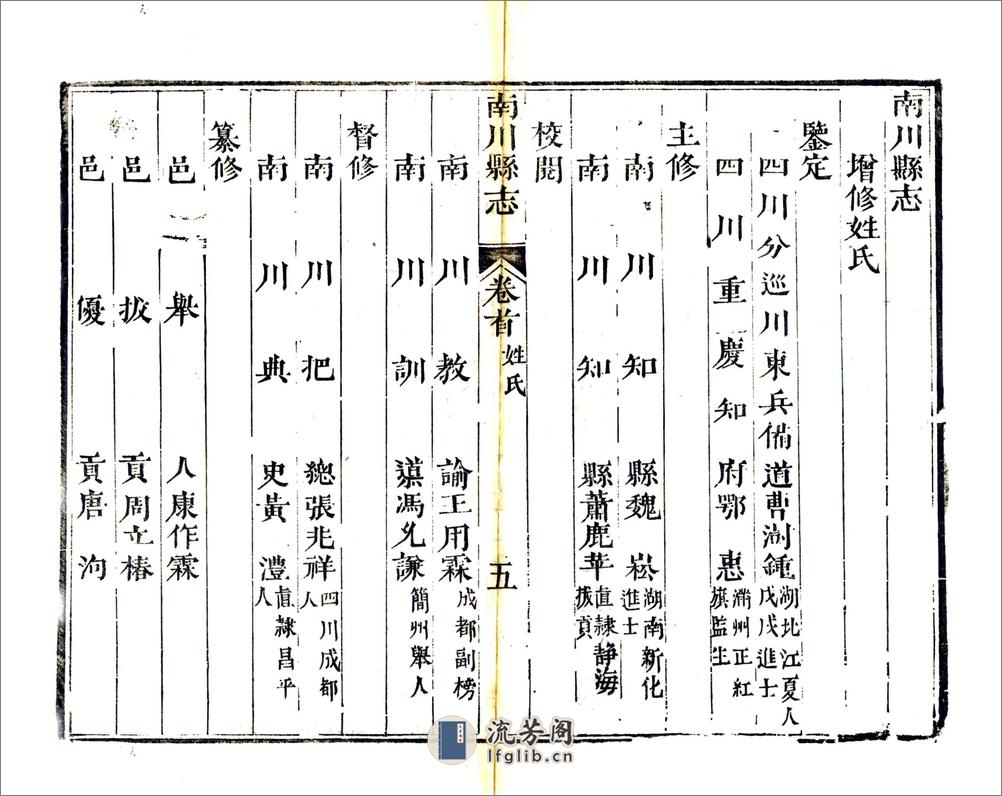 南川縣志
增修姓氏
鑒定
四川分巡川東兵備道曹澍鍾湖北江夏人戊戌進士
四川重慶知府鄂惠滿州正紅旗監生
主修
南川知縣魏崧湖南新化進士
南川知縣蕭鹿苹直隸靜海拔貢
校閱
南川縣志 卷首 姓氏 五
南川教諭王用霖成都副榜
南川訓導馮允謙簡州舉人
督修
南川把總張兆祥四川成都人
南川典史黃澧直隸昌平人
纂修
邑舉人康作霖
邑拔貢周立椿
邑優貢唐泃
流芳阁
lfglib.cn